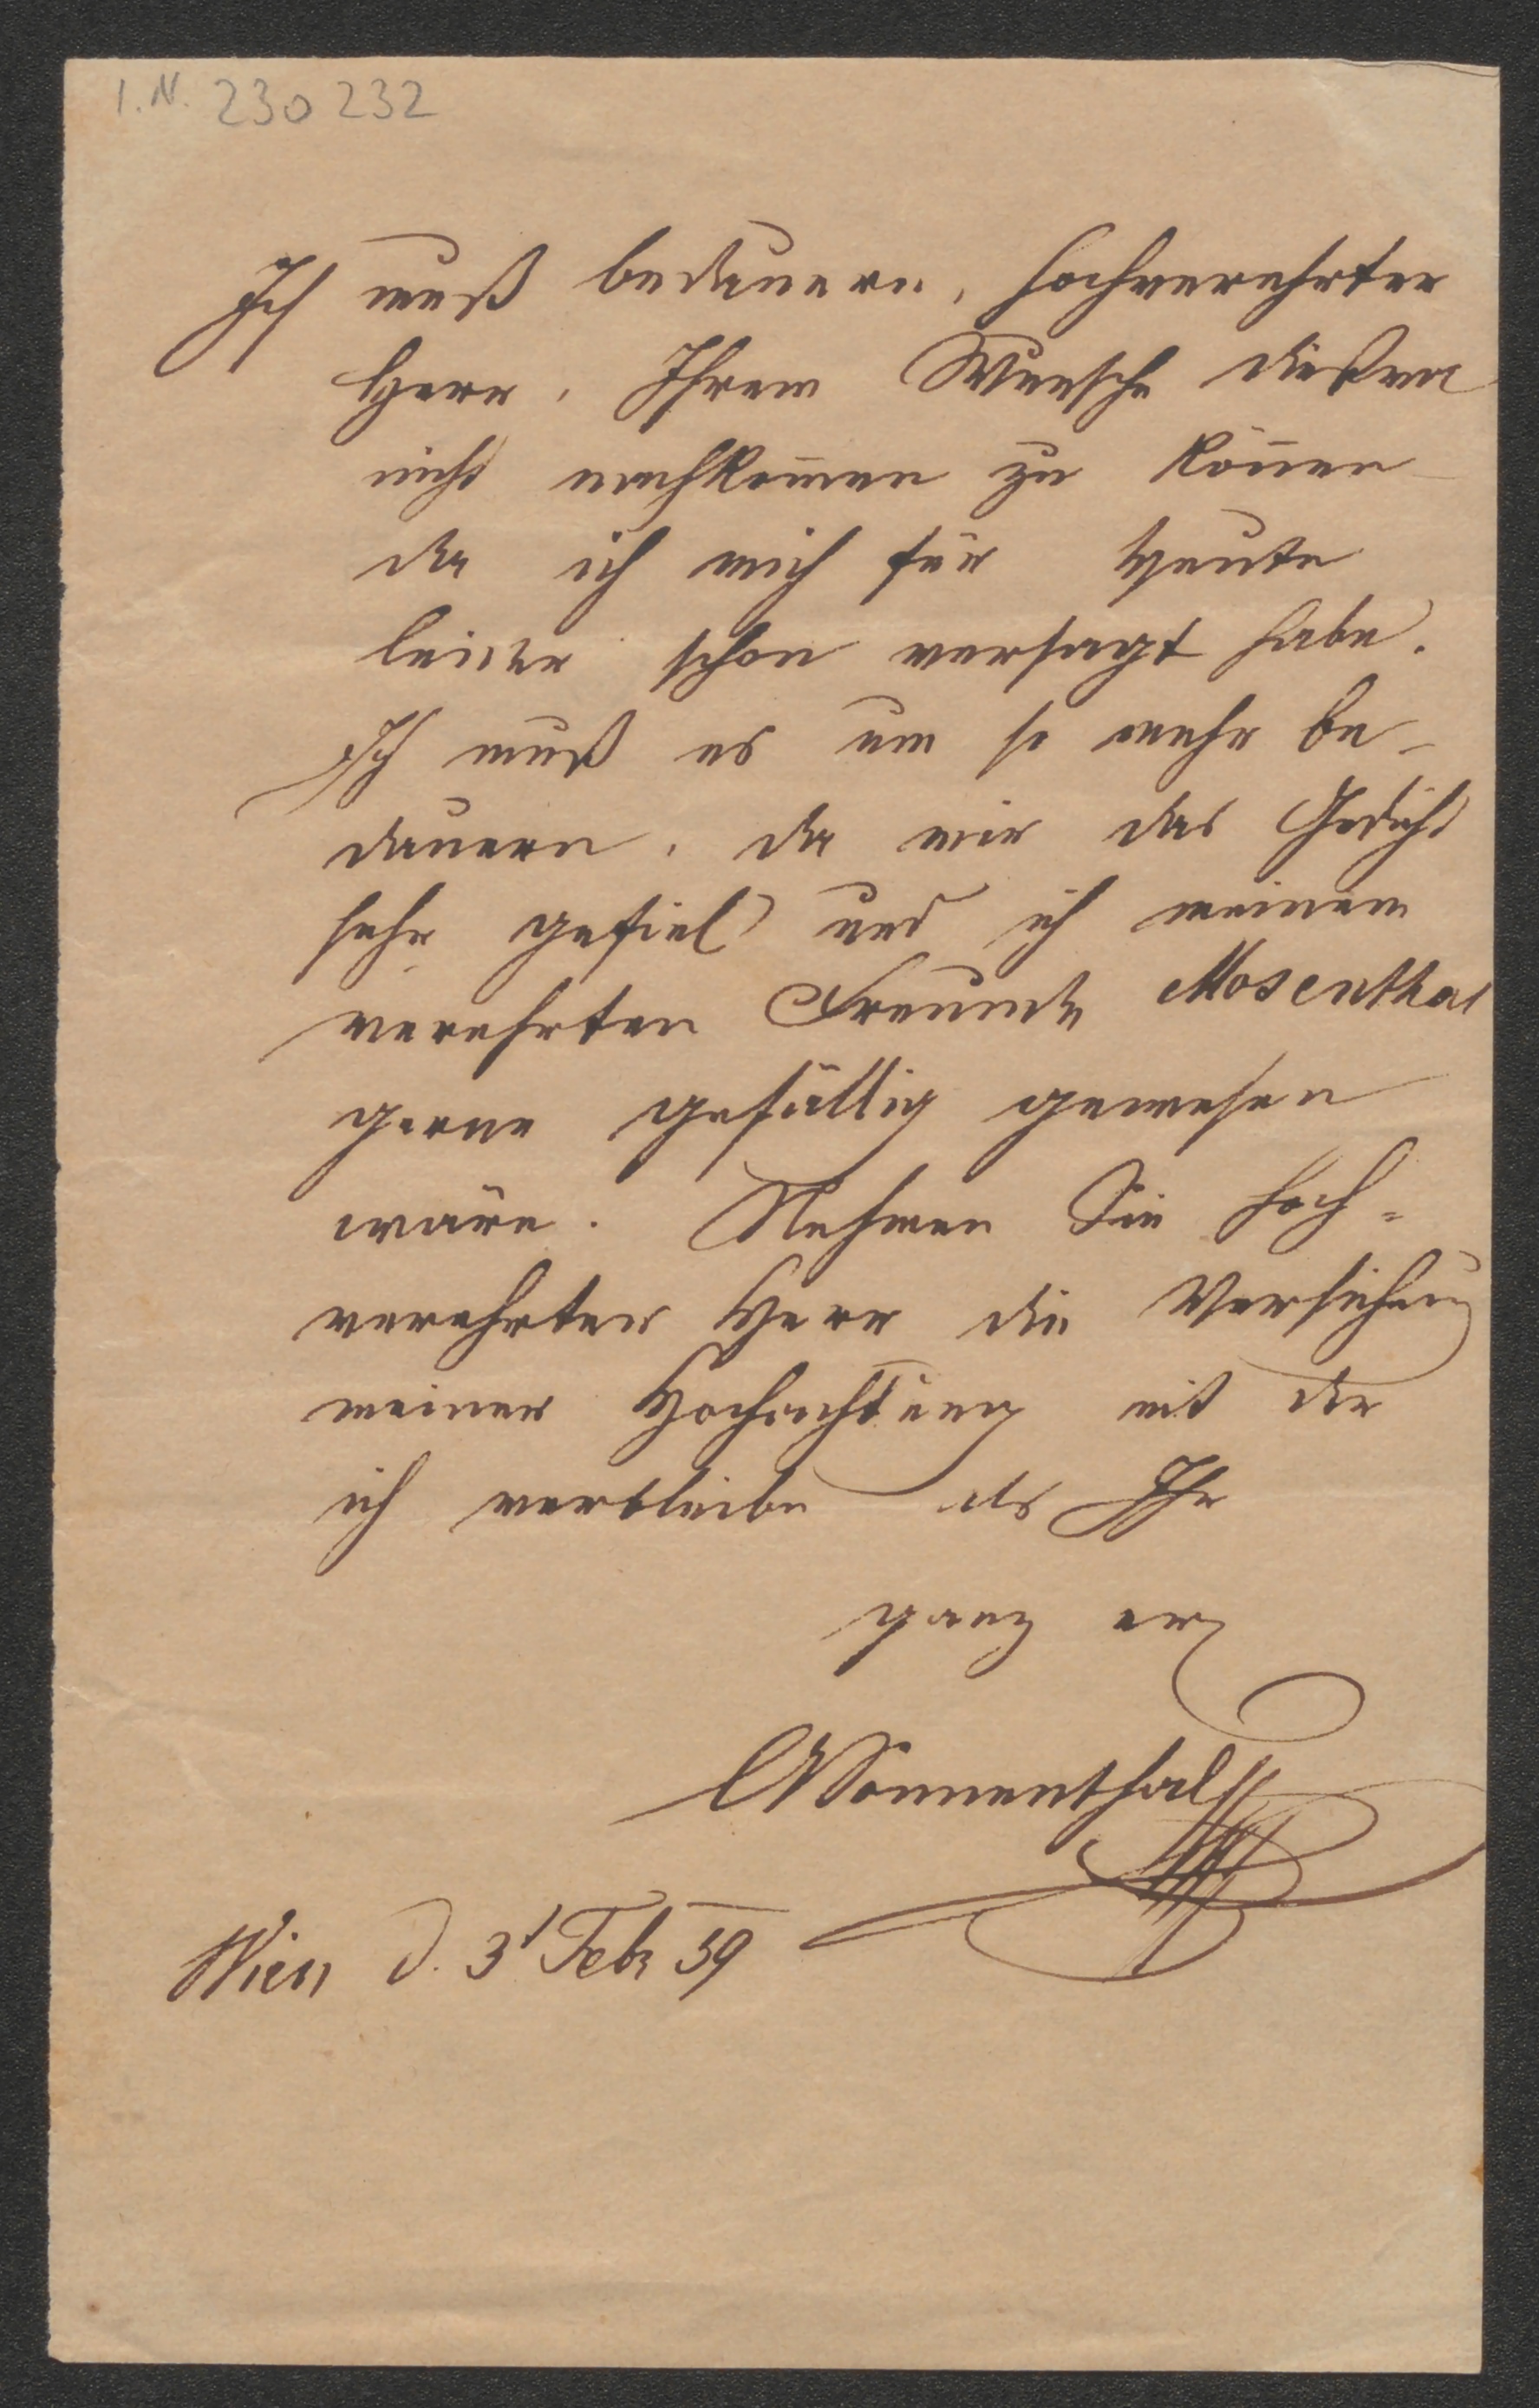 I.N. 230232
Ich muß bedauern, hochverehrter
Herr, Ihrem Wunsche dießmal
nicht nachkom̄en zu kön̄en
da ich mich für heute
leider schon versagt habe.
Ich muß es um so mehr be-
dauern, da mir das Gedicht
sehr gefiel und ich meinem
verehrten Freunde Mosenthal
gerne gefällig gewesen
wäre. Nehmen Sie hoch=
verehrter Herr die Versicherung
meiner Hochachtung mit der
ich verbleibe als Ihr
ganz erg
ASonnenthal
Wien d. 3t Feb 59